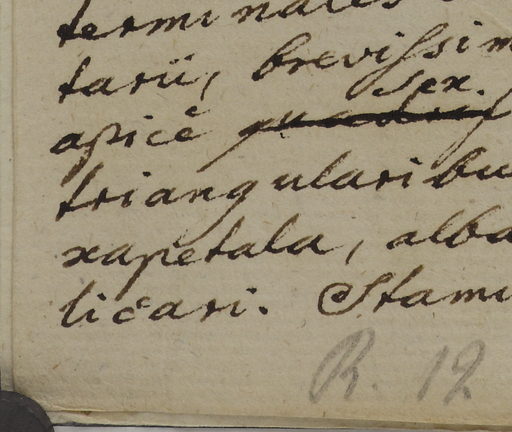 terminales
tarii, brevissim
sex.
apicè quadrif
triangularibu
xapetala, alba
licari. Stami
R. 12